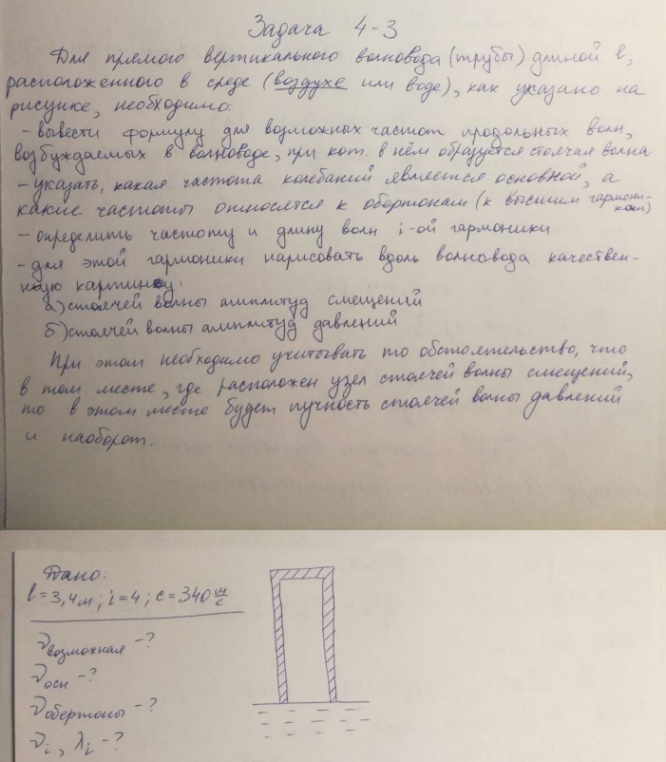 Задача 4-3
Для прямого вертикального волновода (трубы) длиной l,
расположенного в среде (воздухе или воде), как указано на
рисунке, необходимо:
- вывести формулу для возможных частот продольных волн,
возбуждаемых в волноводе, при кот. в нём образуется стоячая волна
- указать, какая частота колебаний является основной, а
какие частоты относятся к обертонам (к высшим гармони-
кам)
- определить частоту и длину волн i-ой гармоники
- для этой гармоники нарисовать вдоль волновода качествен-
ную картину:
а) стоячей волны амплитуд смещений
б) стоячей волны амплитуд давлений
При этом необходимо учитывать то обстоятельство, что
в том месте, где расположен узел стоячей волны смещений,
то в этом месте будет пучность стоячей волны давлений
и наоборот.
Дано:
l=3,4м; i=4; c=340 м/с
ν возможная -?
ν осн -?
ν обертоны -?
ν i, λ i -?